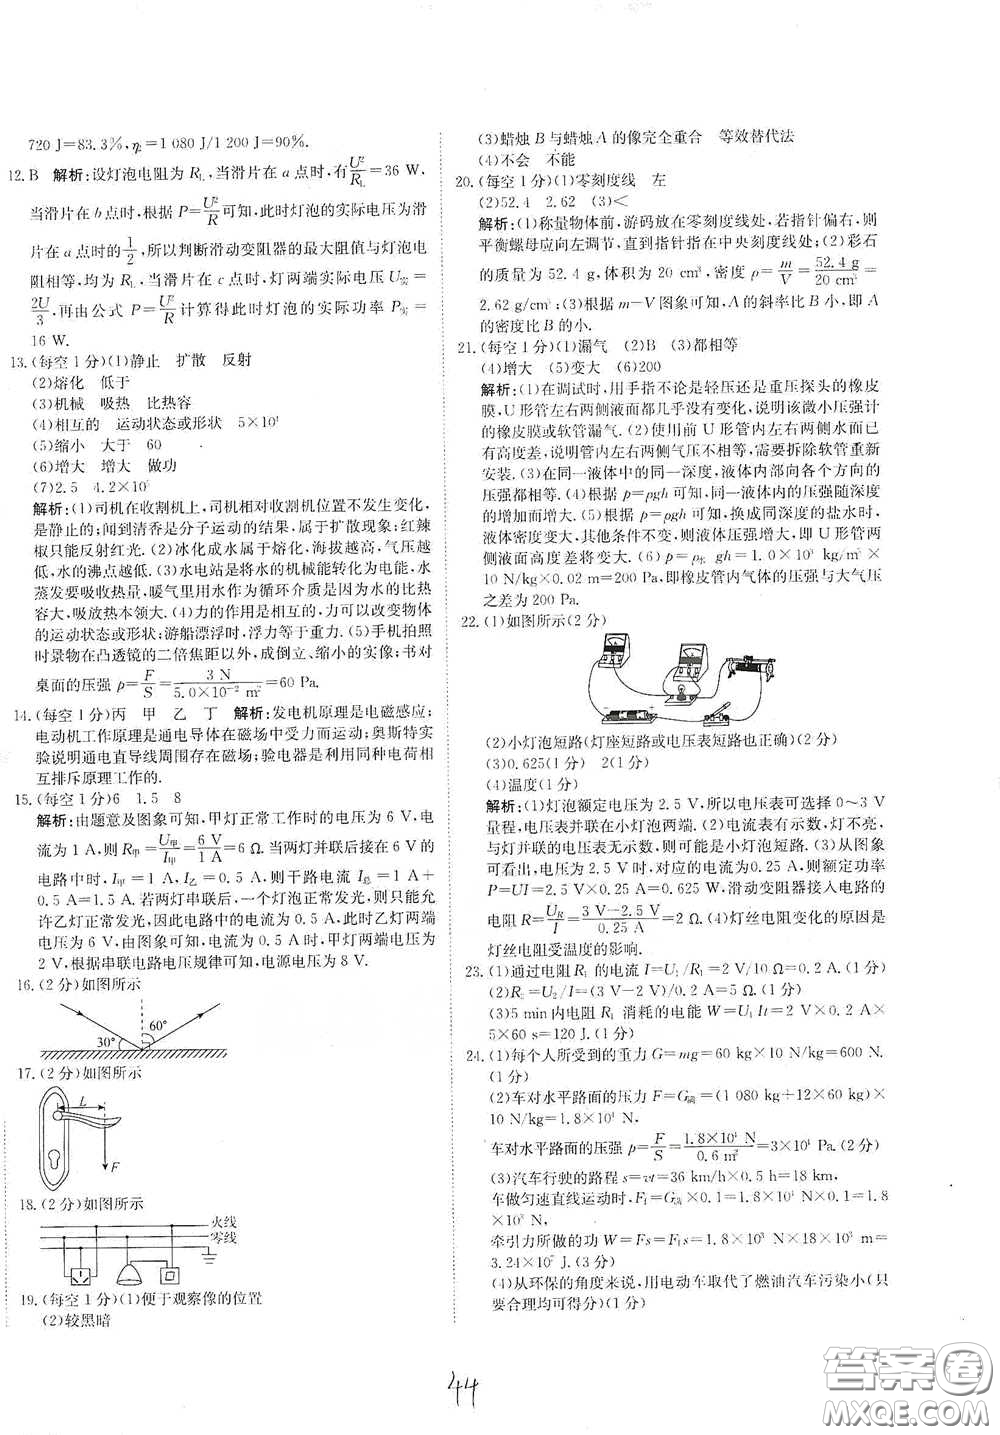 720 J=83.3%,η₂=1 080 J/1 200 J=90%.
12.B 解析:设灯泡电阻为 R_L,当滑片在 a 点时,有 U²/R_L=36 W,
当滑片在 b 点时,根据 P=U²/R 可知,此时灯泡的实际电压为滑
片在 a 点时的 1/2,所以判断滑动变阻器的最大阻值与灯泡电
阻相等,均为 R_L,当滑片在 c 点时,灯两端实际电压 U实=
2U/3,再由公式 P=U²/R 计算得此时灯泡的实际功率 P实=
16 W.
13.(每空 1 分)(1)静止 扩散 反射
(2)熔化 低于
(3)机械 吸热 比热容
(4)相互的 运动状态或形状
(5)缩小 大于 60
(6)增大 增大 做功
(7)2.5
解析:(1)司机在收割机上,司机相对收割机位置不发生变化,
是静止的;闻到清香是分子运动的结果,属于扩散现象;红辣
椒只能反射红光.(2)冰化成水属于熔化,海拔越高,气压越
低,水的沸点越低.(3)水电站是将水的机械能转化为电能,水
蒸发要吸收热量,暖气里用水作为循环介质是因为水的比热
容大,吸放热本领大.(4)力的作用是相互的,力可以改变物体
的运动状态或形状;游船漂浮时,浮力等于重力.(5)手机拍照
时景物在凸透镜的二倍焦距以外,成倒立、缩小的实像;书对
桌面的压强 p=F/S=3 N/5.0×10⁻² m²=60 Pa.
14.(每空 1 分)丙 甲 乙 丁 解析:发电机原理是电磁感应;
电动机工作原理是通电导体在磁场中受力而运动;奥斯特实
验说明通电直导线周围存在磁场;验电器是利用同种电荷相
互排斥原理工作的.
15.(每空 1 分)6 1.5 8
解析:由题意及图象可知,甲灯正常工作时的电压为 6 V,电
流为 1 A,则 R甲=U甲/I甲=6 V/1 A=6 Ω.当两灯并联后接在 6 V的
电路中时,I甲=1 A,I乙=0.5 A,则干路电流 I总=1 A+
0.5 A=1.5 A.若两灯串联后,一个灯泡正常发光,则只能允
许乙灯正常发光,因此电路中的电流为 0.5 A,此时乙灯两端
电压为 6 V,由图象可知,电流为 0.5 A 时,甲灯两端电压为
2 V,根据串联电路电压规律可知,电源电压为 8 V.
16.(2 分)如图所示
30° 60°
17.(2 分)如图所示
L
F
18.(2 分)如图所示
火线
零线
19.(每空 1 分)(1)便于观察像的位置
(2)较黑暗
(3)蜡烛 B 与蜡烛 A 的像完全重合 等效替代法
(4)不会 不能
20.(每空 1 分)(1)零刻度线 左
(2)52.4 2.62 (3)<
解析:(1)称量物体前,游码放在零刻度线处,若指针偏右,则
平衡螺母应向左调节,直到指针指在中央刻度线处;(2)彩石
的质量为 52.4 g,体积为 20 cm³,密度 ρ=m/V=52.4 g/20 cm³=
2.62 g/cm³;(3)根据 m-V 图象可知,A 的斜率比 B 小,即 A
的密度比 B 的小.
21.(每空 1 分)(1)漏气 (2)B (3)都相等
(4)增大 (5)变大 (6)200
解析:(1)在调试时,用手指不论是轻压还是重压探头的橡皮
膜,U 形管左右两侧液面都几乎没有变化,说明该微小压强计
的橡皮膜或软管漏气.(2)使用前 U 形管内左右两侧水面有
高度差,说明管内左右两侧气压不相等,需要拆除软管重新
安装.(3)在同一液体中的同一深度,液体内部向各个方向的
压强都相等.(4)根据 p=ρgh 可知,同一液体内的压强随深度
的增加而增大.(5)根据 p=ρgh 可知,换成同深度的盐水时,
液体密度变大,其他条件不变,则液体压强增大,即 U 形管两
侧液面高度差将变大.(6)p=ρ水gh=1.0×10³ kg/m³×
10 N/kg×0.02 m=200 Pa,即橡皮管内气体的压强与大气压
之差为 200 Pa.
22.(1)如图所示(2 分)
(2)小灯泡短路(灯座短路或电压表短路也正确)(2 分)
(3)0.625(1分) 2(1 分)
(4)温度(1 分)
解析:(1)灯泡额定电压为 2.5 V,所以电压表可选择 0~3 V
量程,电压表并联在小灯泡两端.(2)电流表有示数,灯不亮,
与灯并联的电压表无示数,则可能是小灯泡短路.(3)从图象
可看出,电压为 2.5 V 时,对应的电流为 0.25 A,额定功率
P=UI=2.5 V×0.25 A=0.625 W,滑动变阻器接入电路的
电阻 R=U_R/I=3 V-2.5 V/0.25 A=2 Ω.(4)灯丝电阻变化的原因是
灯丝电阻受温度的影响.
23.(1)通过电阻 R₁ 的电流 I=U₁/R₁=2 V/10 Ω=0.2 A(1 分)
(2)R₂=U₂/I=(3 V-2 V)/0.2 A=5 Ω.(2 分)
(3)5 min内电阻 R₁ 消耗的电能 W=U₁It=2 V×0.2 A×
5×60 s=120 J.(1 分)
24.(1)每个人所受到的重力 G=mg=60 kg×10 N/kg=600 N.
(1 分)
(2)车对水平路面的压力 F=G满=(1 080 kg+12×60 kg)×
10 N/kg=1.8×10⁴ N,
车对水平路面的压强 p=F/S=1.8×10⁴ N/0.6 m²=3×10⁴ Pa.(2分)
(3)汽车行驶的路程 s=vt=36 km/h×0.5 h=18 km,
车做匀速直线运动时,F₁=G满×0.1=1.8×10⁴ N×0.1=1.8
×10³ N,
牵引力所做的功 W=Fs=F₁s=1.8×10³ N×18×10³ m=
3.24×10⁷ J.(3 分)
(4)从环保的角度来说,用电动车取代了燃油汽车污染小(只
要合理均可得分)(1 分)
44
答案圈
MXQE.COM